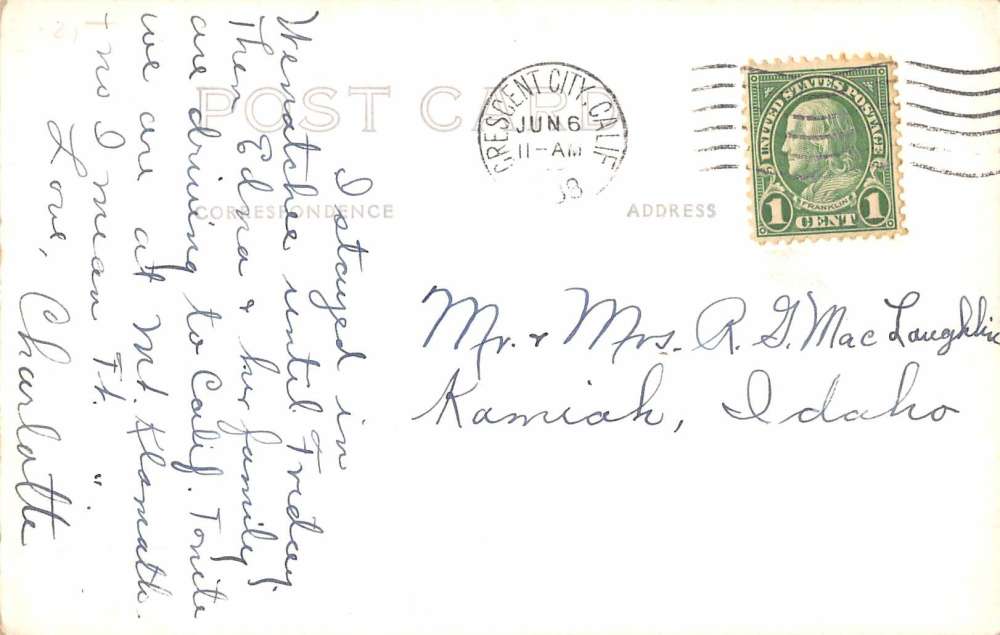 POST CARD
CORRESPONDENCE
ADDRESS
CRESCENT CITY, CALIF
JUN 6
11-AM
UNITED STATES POSTAGE
FRANKLIN
1 CENT 1
I stayed in
Wenatchee until Friday.
Then Edna & her family
are driving to Calif. Tonite
we are at Mt. Klamath.
+ no I mean Ft. "
Love, Charlotte
Mr. & Mrs. R. G. MacLaughlin
Kamiah, Idaho